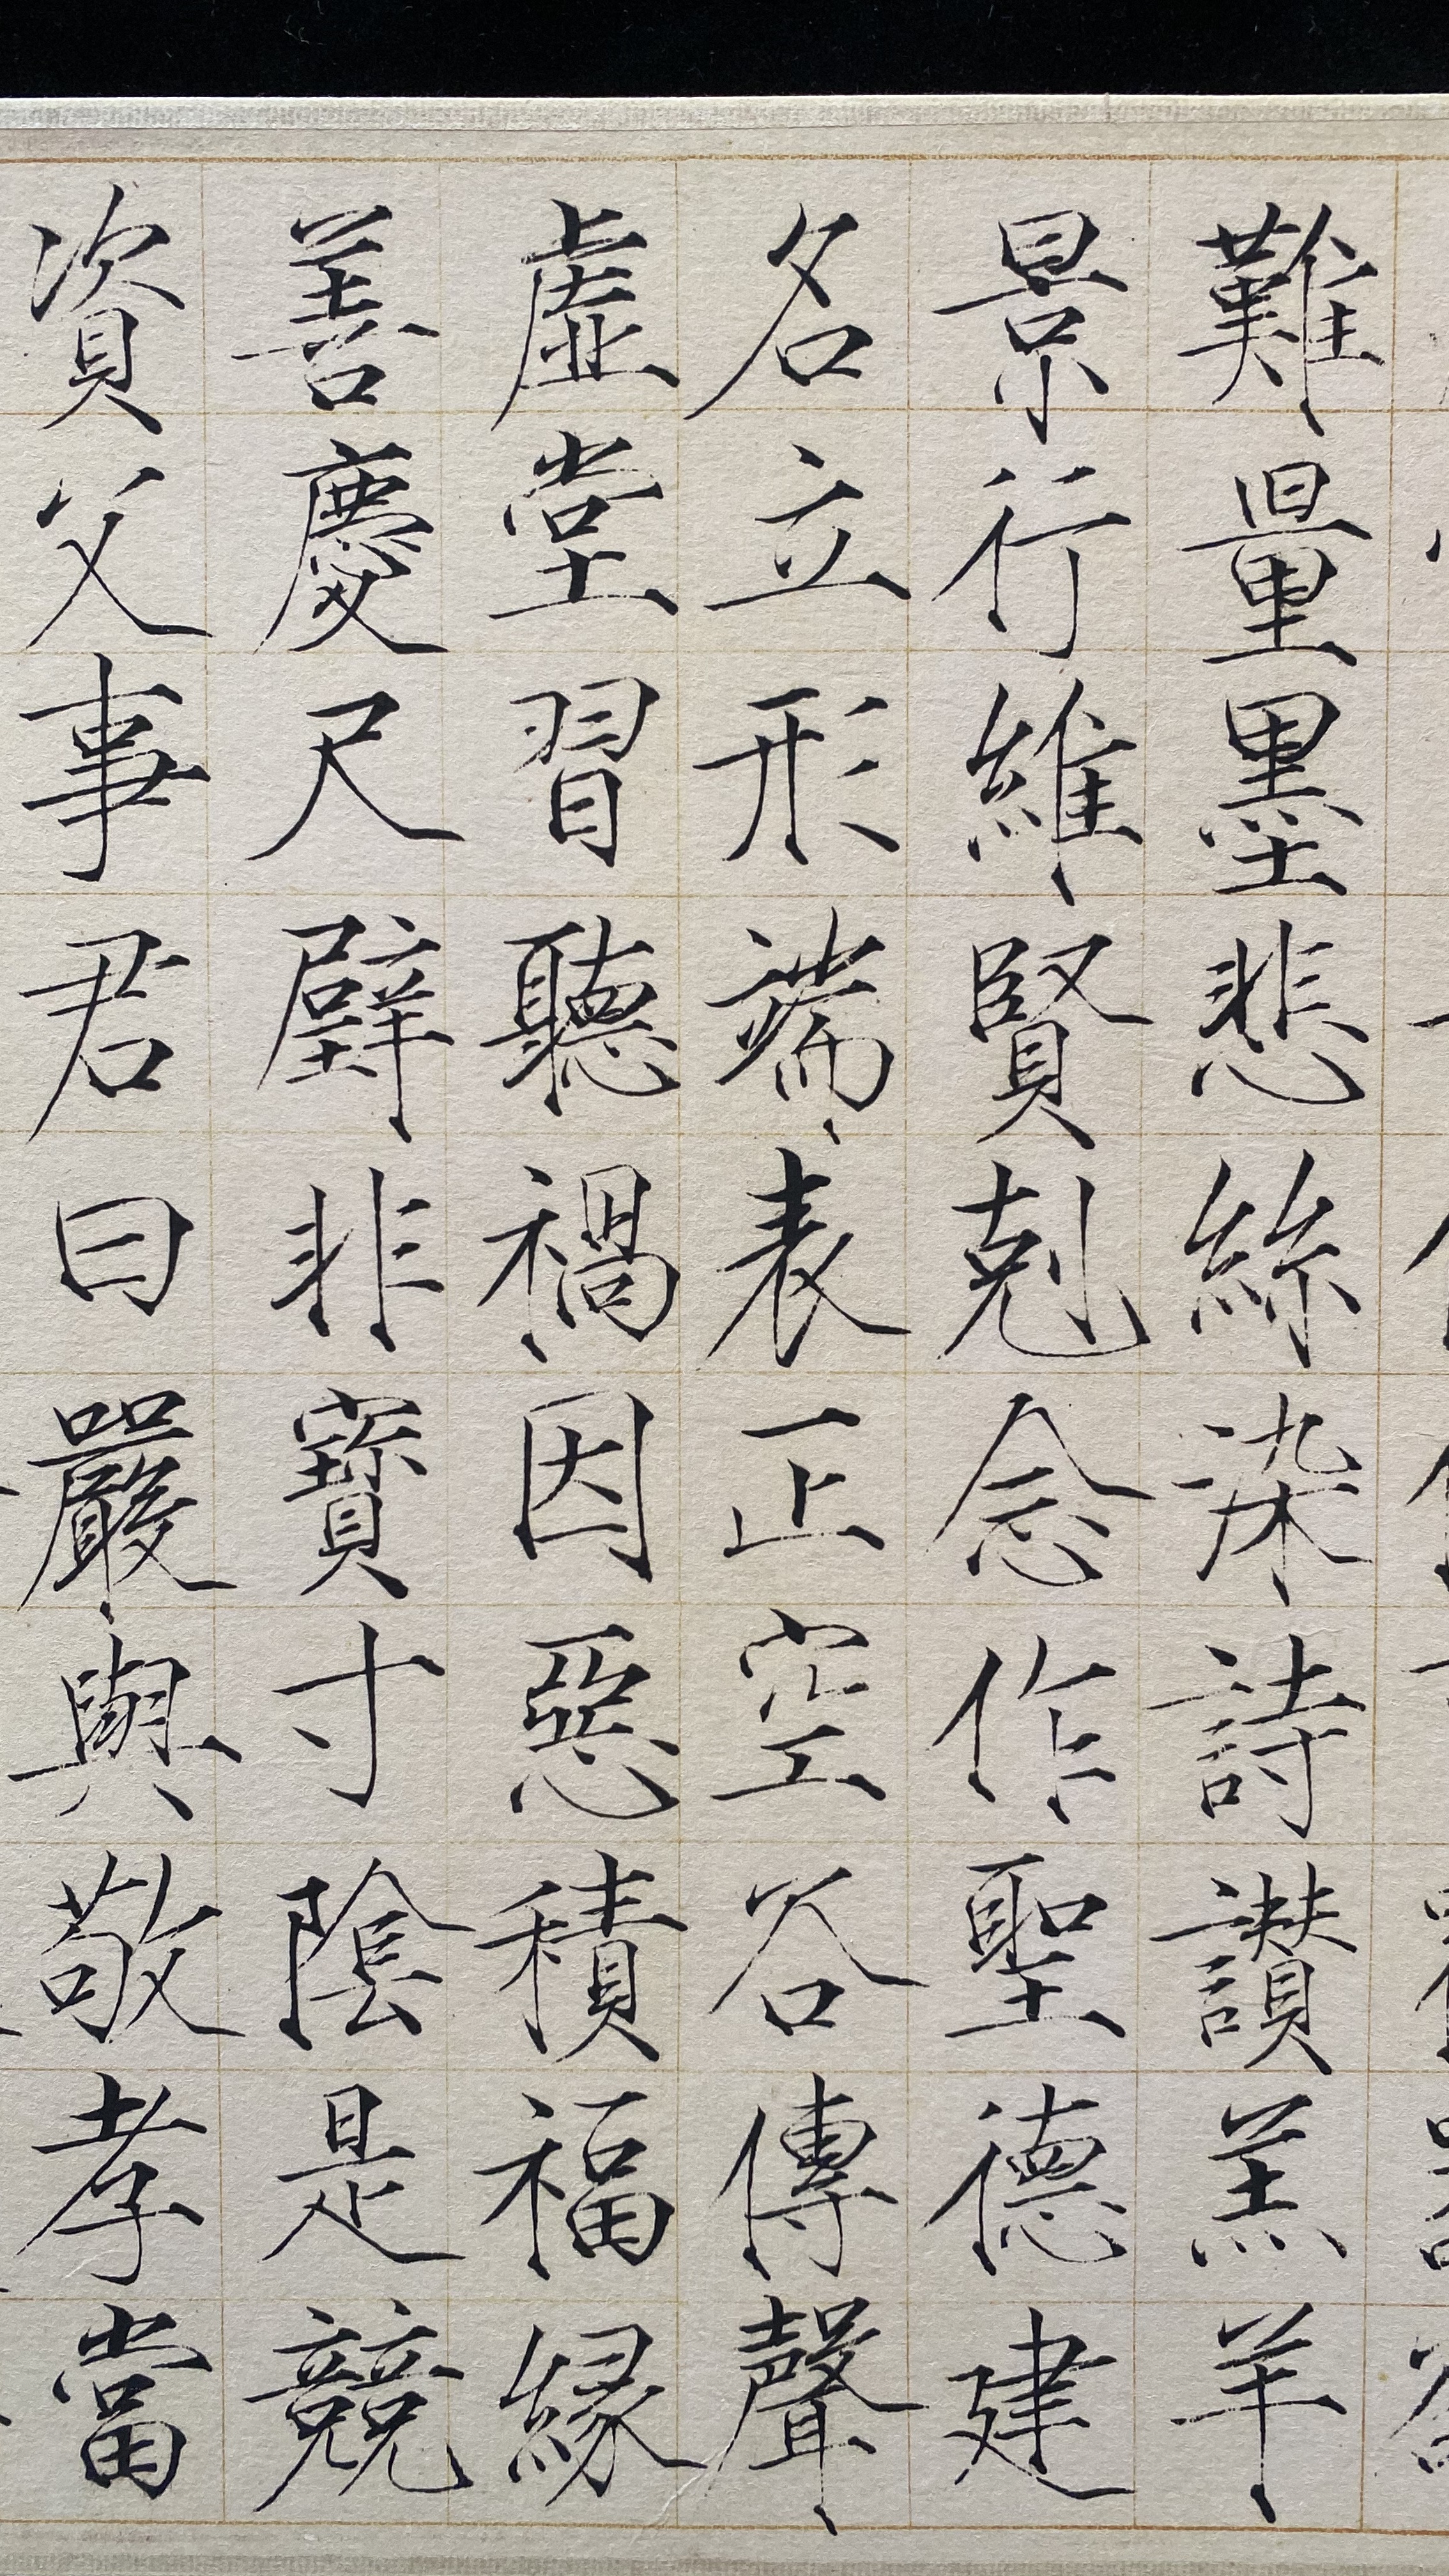 難量墨悲絲染詩讃羔羊
景行維賢剋念作聖德建
名立形端表正空谷傳聲
虛堂習聽禍因惡積福緣
善慶尺璧非寶寸陰是競
資父事君曰嚴與敬孝當